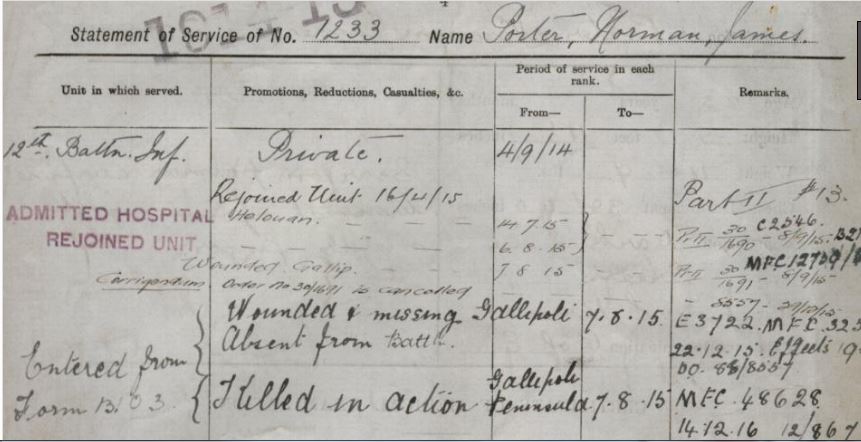 Statement of Service of No. 1233 Name Porter, Norman, James.
Unit in which served.
Promotions, Reductions, Casualties, &c.
Period of service in each rank.
From—
To—
Remarks.
12th. Battn. Inf. Private. 4/9/14
Rejoined Unit 16/4/15 Part II #13.
ADMITTED HOSPITAL Helouan. 14 7 15 Pt. II 30/1690 C2546. 8/9/15
REJOINED UNIT 6. 8. 15
Wounded Gallip. 7 8 15 Pt II 30/1691 8/9/15
Corrigendum Order No 30/1691 is cancelled 8557 29/10/15
Wounded & missing Gallipoli 7. 8. 15. E3722. MFC. 323
Absent from Battn. 22.12.15. Effects 19
DO. 88/8557
Entered from
Form B103
Killed in action Gallipoli Peninsula 7. 8. 15 MFC. 48628
14.12.16 12/867